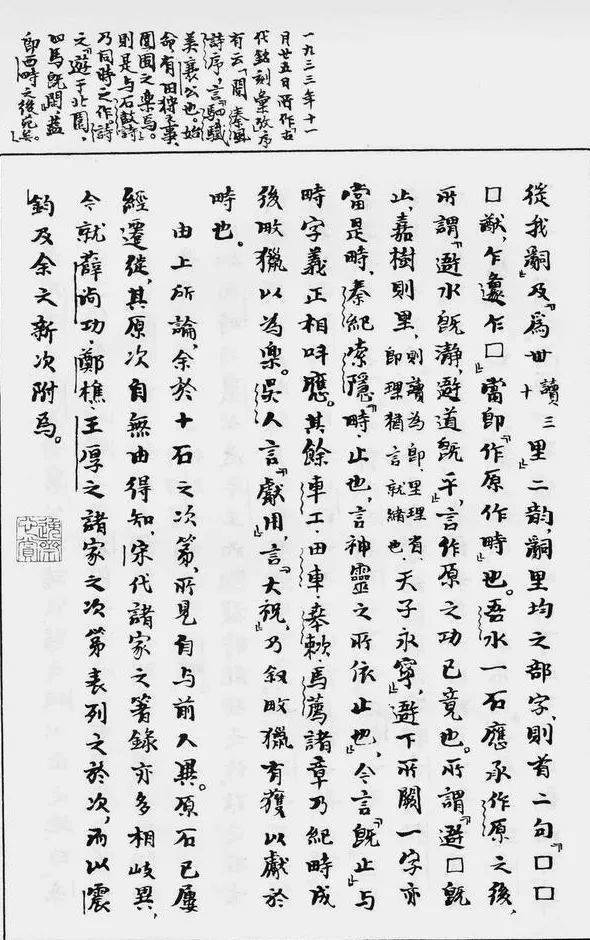 一九三三年十一
月廿五日所作「古
代銘刻彙攷」序
有云「閱秦風
詩序,言「駟驖
美襄公也。始
命,有田狩之事、
園囿之樂焉。」
則是与石鼓詩
乃同時之作。詩
之「遊于北園,
四馬既閑」,蓋
即西畤之後苑矣。
從我嗣」及「爲卅讀三十里」二韵,嗣里均之部字,則首二句「囗囗
囗猷,乍邍乍囗」當即「作原作畤」也。吾水一石應承作原之後,
所謂「避水既瀞,避道既平」,言作原之功已竟也。所謂「避囗既
止,嘉樹則里,則讀為即,里理省,即理猶言就緒也。天子永寧」,避下所闕一字亦
當是畤,秦紀索隱「畤,止也,言神靈之所依止也」,今言「既止」与
畤字義正相呼應。其餘車工、田車、敕、馬薦諸章乃紀畤成
後畋獵以為樂。吳人言「獻用」,言「大祝」,乃叙畋獵有獲以獻於
畤也。
由上所論,余於十石之次第,所見自与前人異。原石已屢
經遷徙,其原次自無由得知,宋代諸家之箸錄亦多相歧異,
今就薛尚功、鄭樵、王厚之諸家之次第表列之於次,而以震
鈞及余之新次附焉。